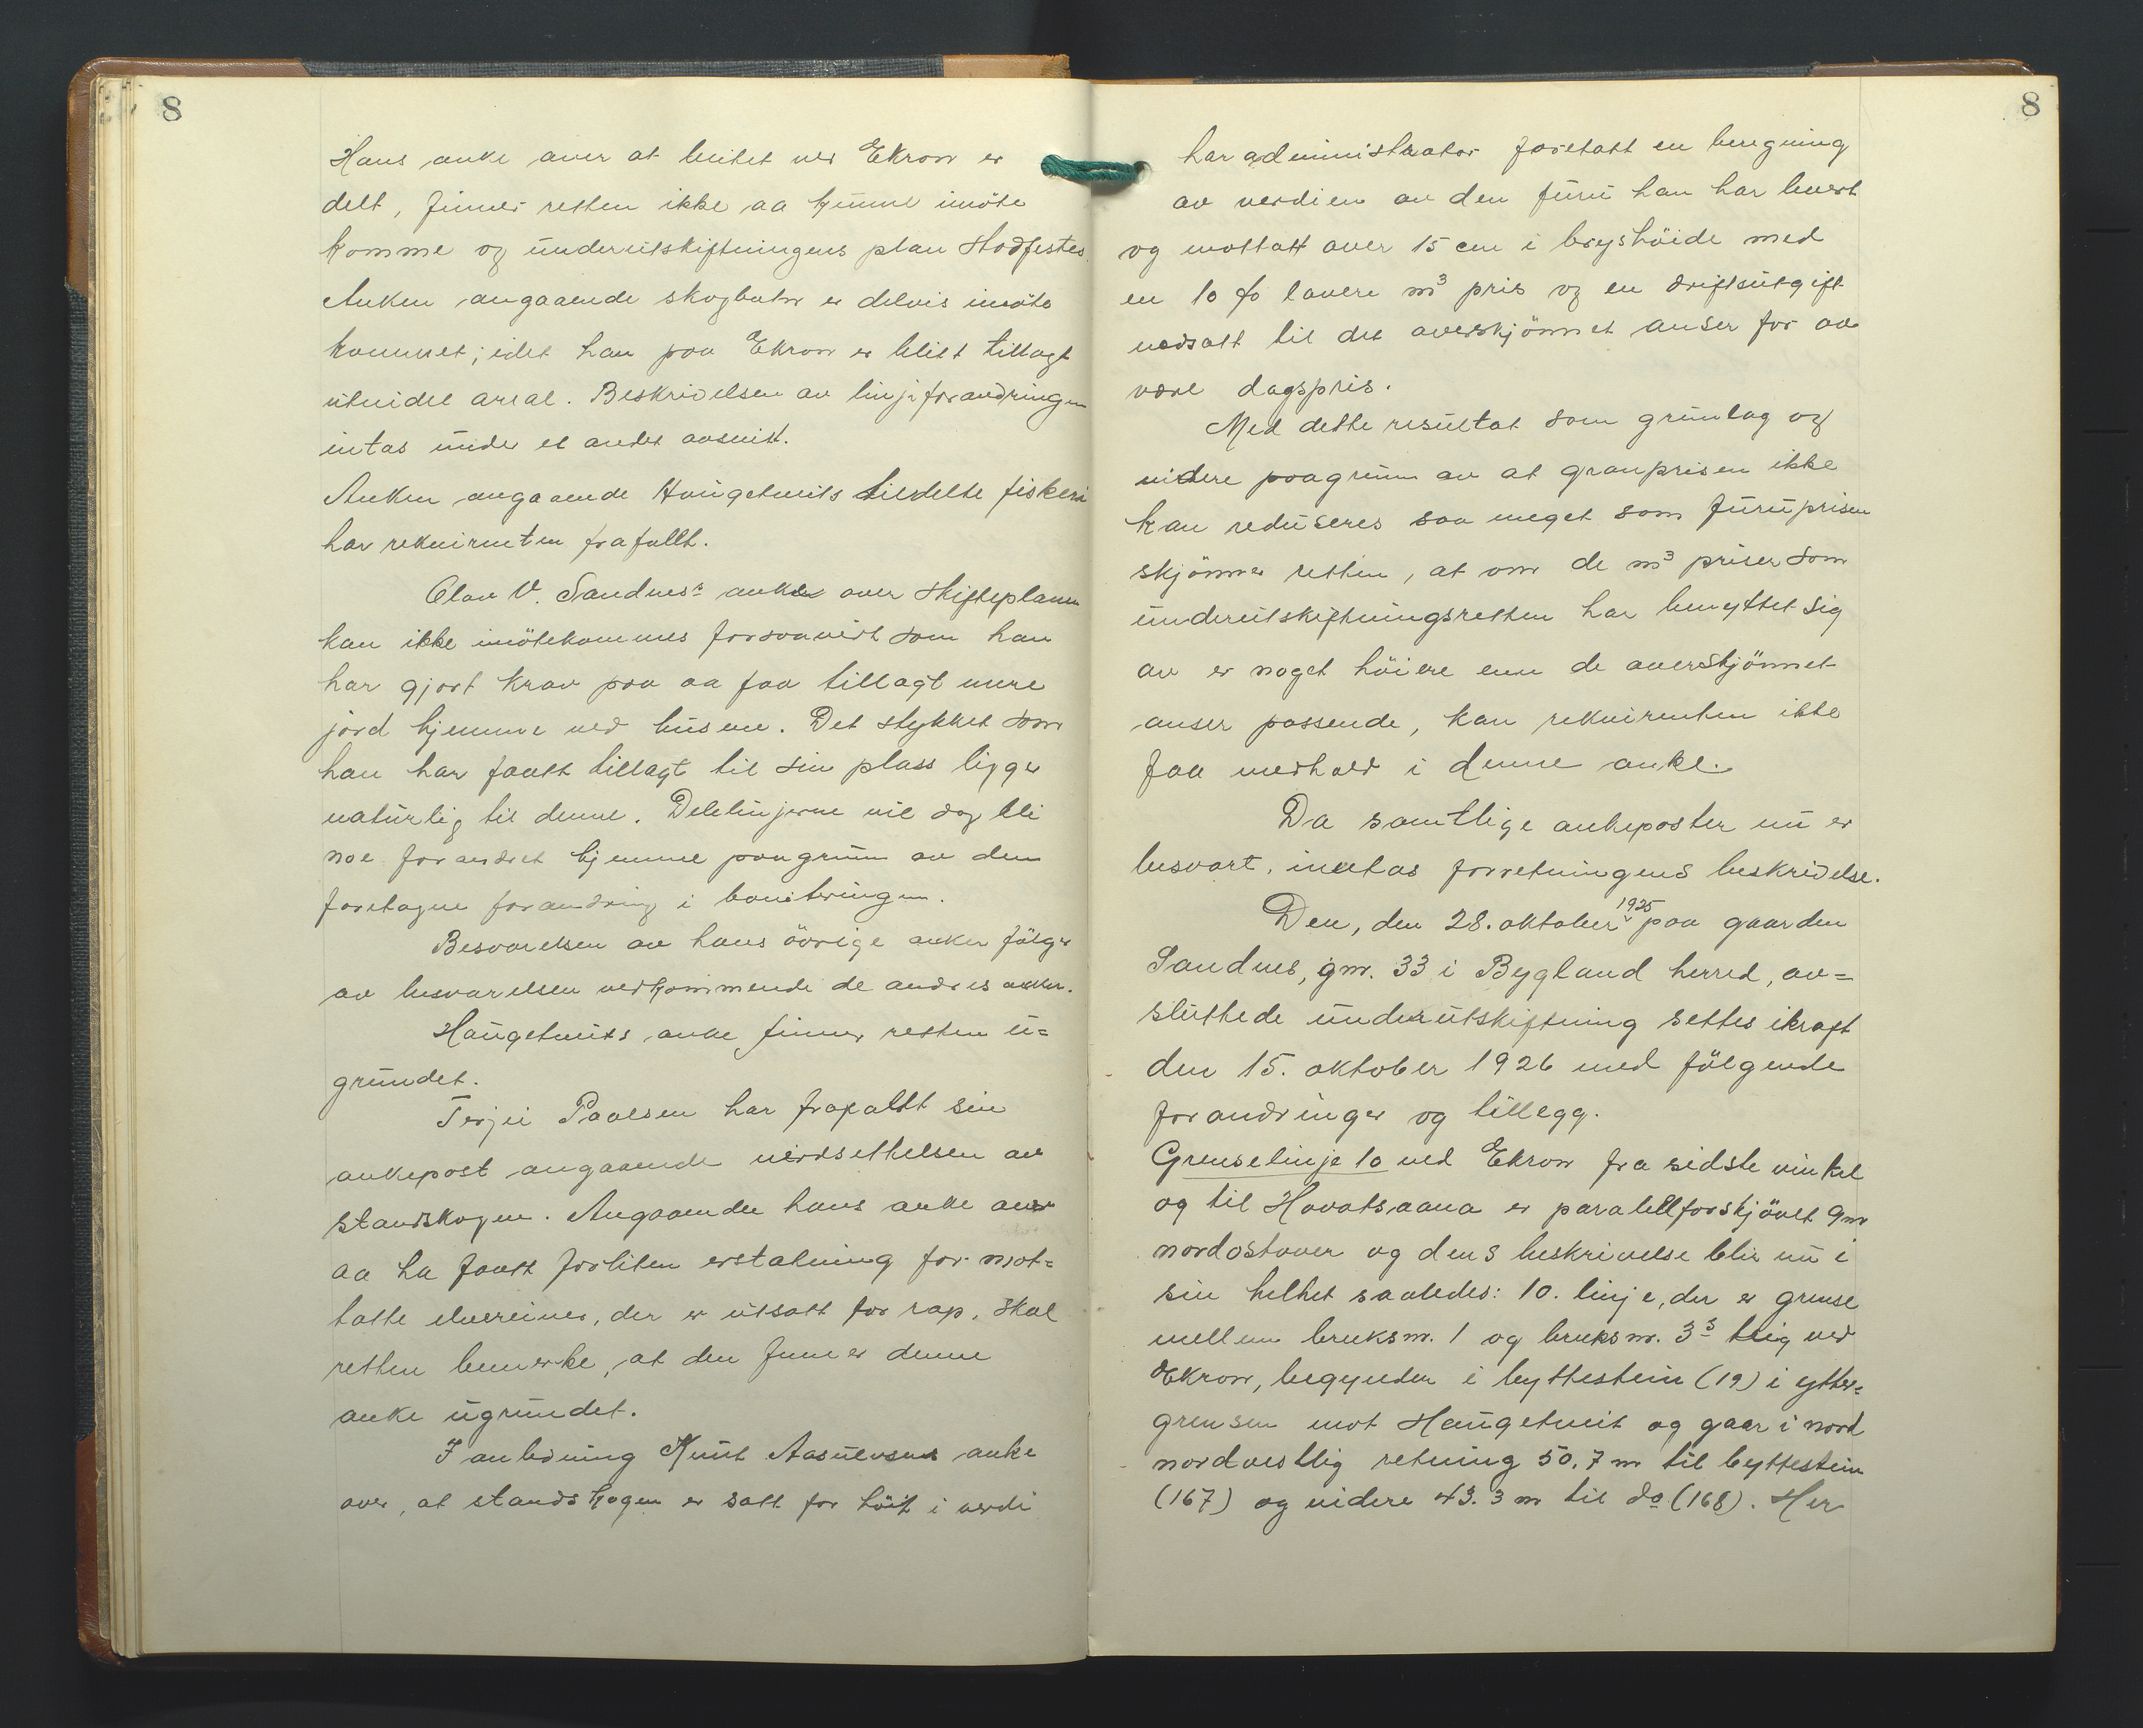 8
Hans anke over at beitet ved Ekron er
delt, finner retten ikke aa kunne imöte
komme og underutskiftningens plan stadfestes.
Anken angaaende skogbotn er delvis imöte
kommet; idet han paa Ekron er blitt tillagt
utvidet areal. Beskrivelsen av linjeforandringen
intas under et andet avsnitt.
Anken angaaende Haugetveits tildelte fiskeri
har rekvirenten frafallt.
Olav V. Sandnes anke over skifteplanen
kan ikke imötekommes forsaavidt som han
har gjort krav paa aa faa tillagt mere
jord hjemme ved husene. Det stykket som
han har faatt tillagt til sin plass ligger
naturlig til denne. Delelinjerne vil dog bli
noe forandret hjemme paagrunn av den
foretagne forandring i boniteringen.
Besvarelsen av hans övrige anker fölger
av besvarelsen vedkommende de andres anker.
Haugetveits anke finner retten u=
grundet.
Terjei Paalsen har frafallt sin
ankepost angaaende verdsettelsen av
standskogen. Angaaende hans anke over
aa ha faatt forliten erstatning for mot=
tatte elvereiner, der er utsatt for rap, skal
retten bemerke, at den finner denne
anke ugrundet.
I anledning Knut Aasulvsens anke
over, at standskogen er satt for höit i verdi
8
har administrator foretatt en beregning
av verdien av den furu han har levert
og mottatt over 15 cm i brysthöide med
en 10 % lavere m³ pris og en driftsutgift
nedsatt til det overskjönnet anser for aa
være dagspris.
Med dette resultat som grunlag og
videre paagrunn av at granprisen ikke
kan reduseres saa meget som furuprisen
skjönner retten, at om de m³ priser som
underutskiftningsretten har benyttet sig
av er noget höiere enn de overskjönnet
anser passende, kan rekvirenten ikke
faa medhold i denne anke.
Da samtlige ankeposter nu er
besvart, inntas forretningens beskrivelse.
Den, den 28. oktober 1925 paa gaarden
Sandnes, gnr. 33 i Bygland herred, av=
sluttede underutskiftning settes ikraft
den 15. oktober 1926 med fölgende
forandringer og tillegg.
Grenselinje 10 ved Ekron fra sidste vinkel
og til Hovatsaana er paralellforskjövet 9m
nordostover og dens beskrivelse blir nu i
sin helhet saaledes: 10. linje, der er grense
mellem bruksnr. 1 og bruksnr. 3³ teig ved
Ekron, begynder i byttestein (19) i ytter=
grensen mot Haugetveit og gaar i nord
nordvestlig retning 50.7 m til byttestein
(167) og videre 43.3 m til do (168). Her